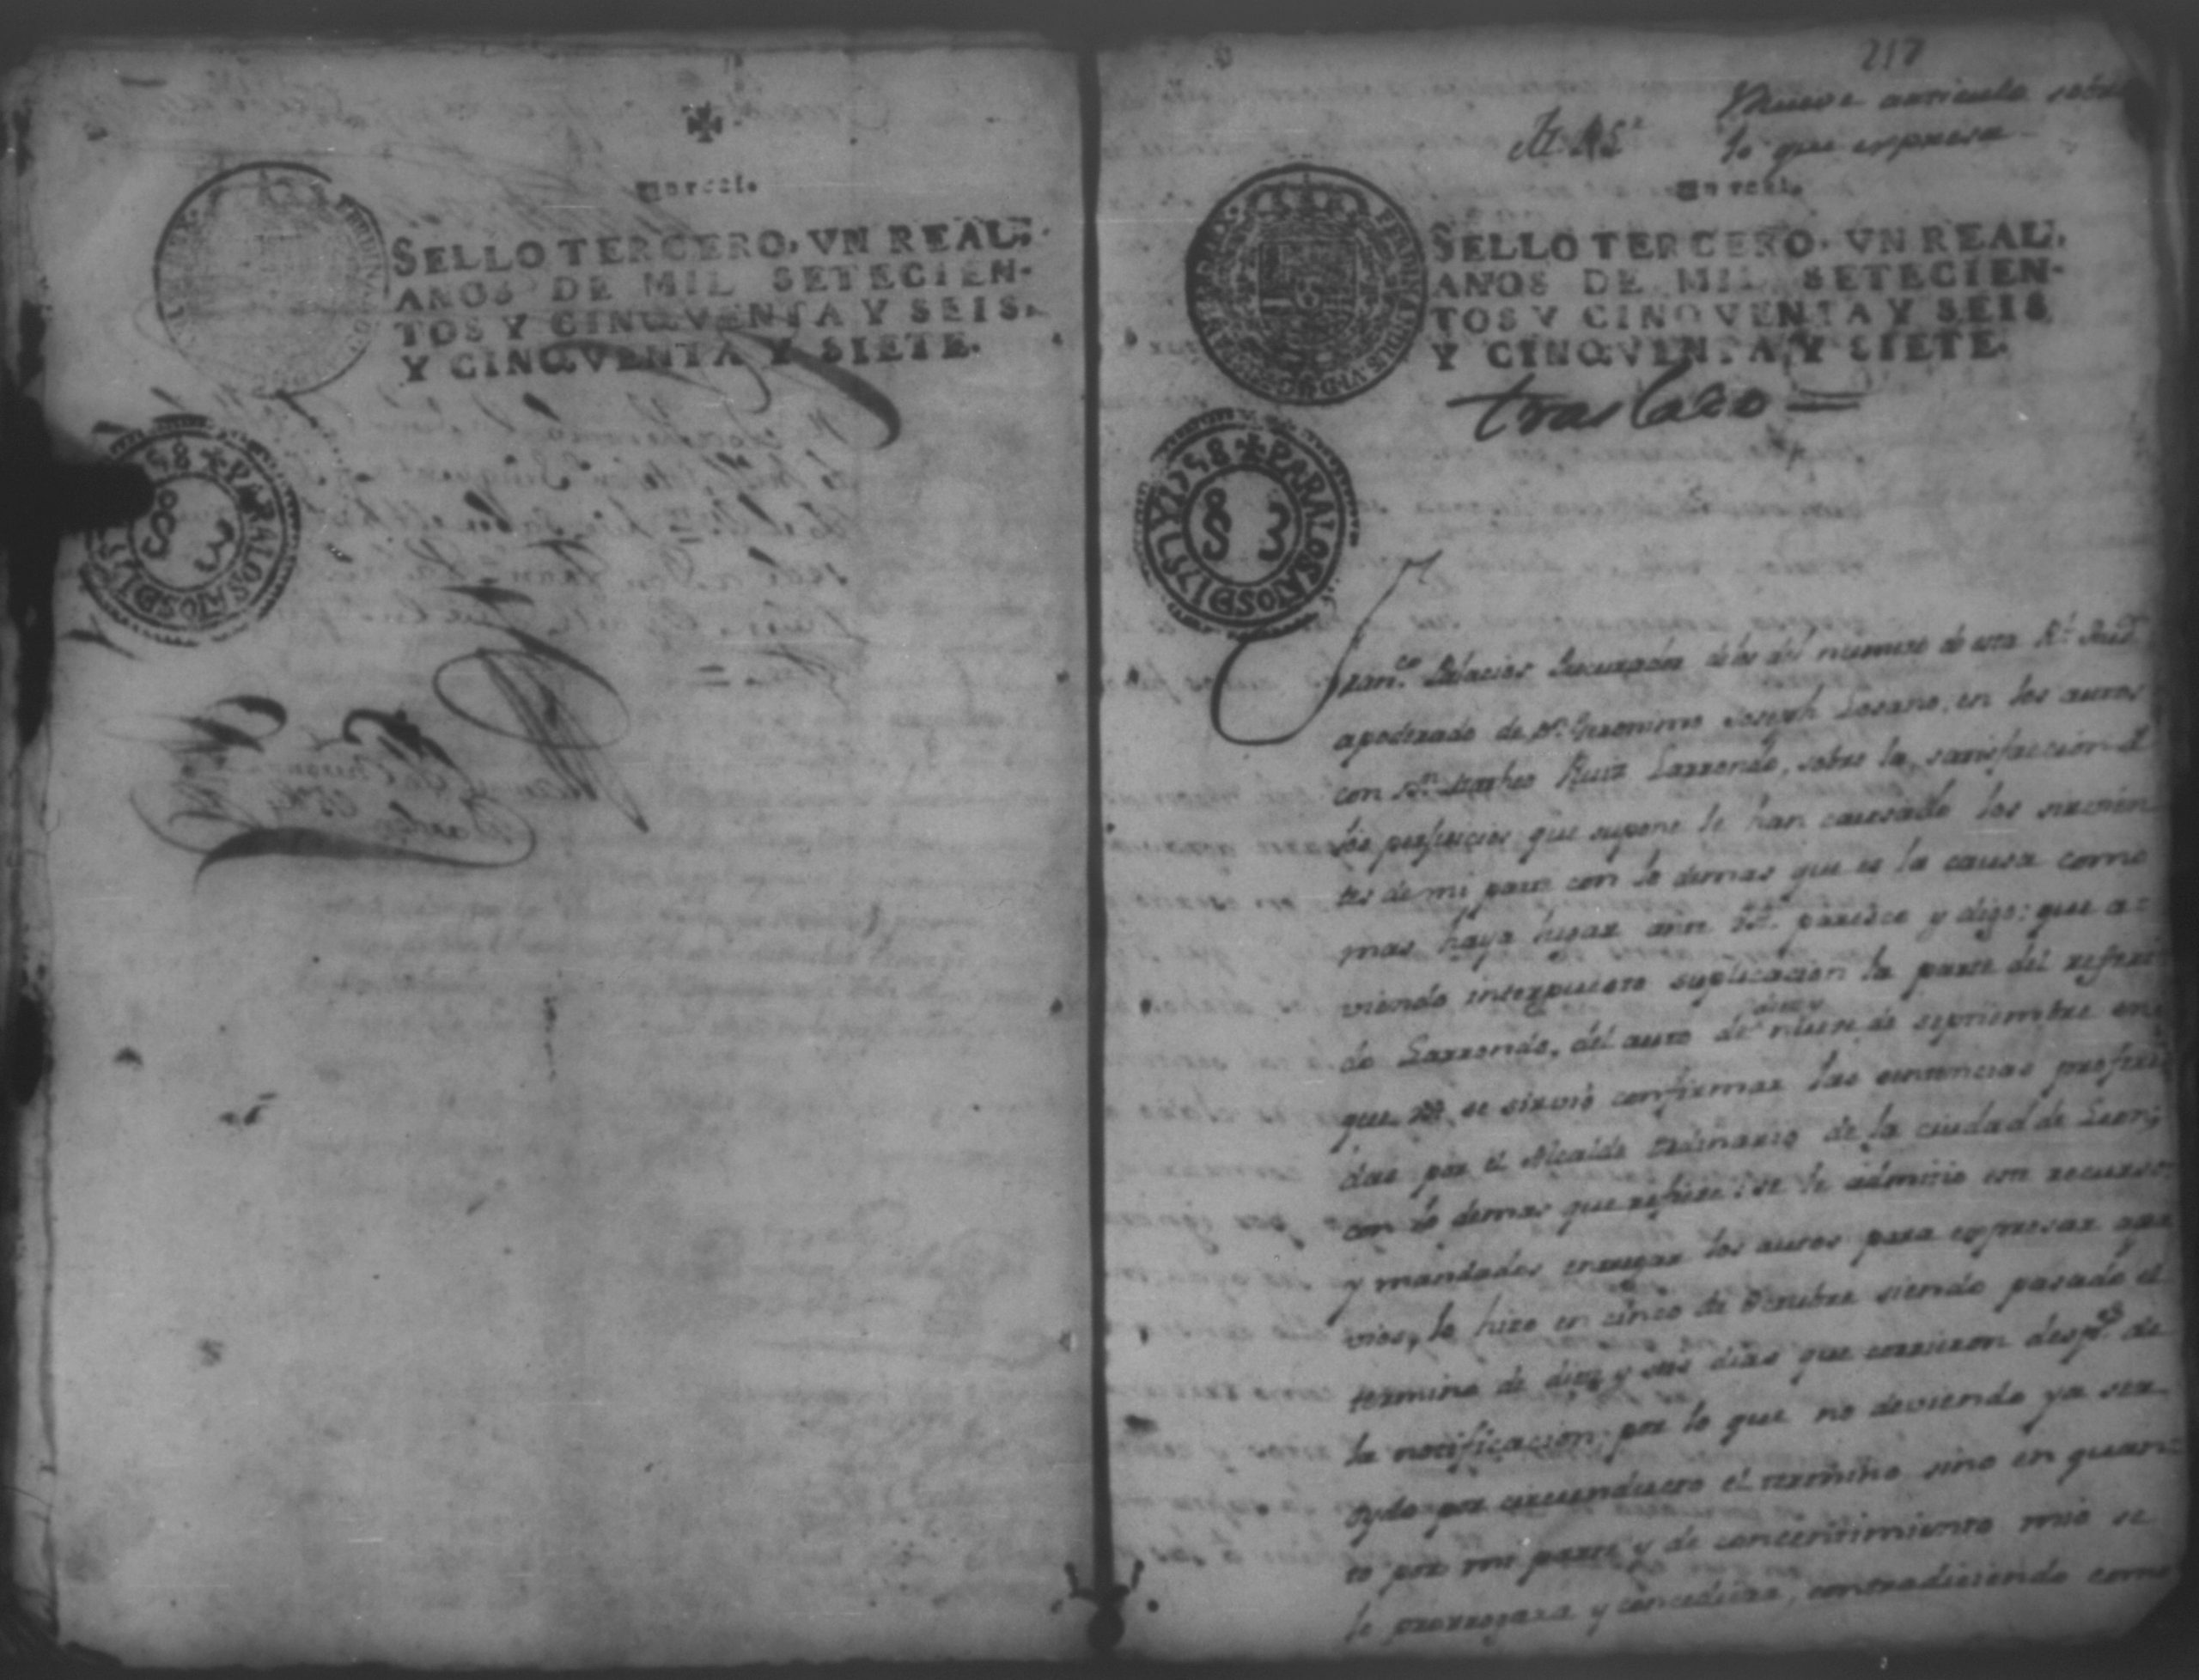 Un real.
SELLO TERCERO, VN REAL,
AÑOS DE MIL SETECIEN-
TOS Y CINQVENTA Y SEIS,
Y CINQVENTA Y SIETE.
1758 PARA LOS AÑOS DE 1757
83
217
Mueve articulo sobre
lo que expresa
Un real.
SELLO TERCERO, VN REAL,
AÑOS DE MIL SETECIEN-
TOS Y CINQVENTA Y SEIS
Y CINQVENTA Y SIETE.
traslado =
PARA LOS AÑOS DE 1757 Y 1758
83
Fran.co Palacios Procurador delos del numero de esta Rl. Aud.
apoderado de Dn. Geronimo Joseph Losano, en los autos
con Dn. Matheo Ruiz Larrondo, sobre la satisfaccion d
los perjuicios que supone le han causado los sirvien
tes de mi parte con lo demas que es la causa como
mas haya lugar ante paresco y digo: que a=
viendo interpuesto suplicacion la parte del referi
do Larrondo, del auto de diez y nueve de septiembre en
que se sirvió confirmar las sentencias proferi
das por el Alcalde Ordinario de la ciudad de Leon,
con lo demas que refiere: se le admitio este recurso
y mandados entregar los autos para expresar agra
vios, lo hizo en cinco de Octubre siendo pasado el
termino de diez y seis dias que corrieron desp.s de
la notificacion; por lo que no deviendo ya ser
oydo por circunducto el termino sino en quan=
to por mi parte y de consentimiento mio se
le prorrogara y concediera, contradiciendo como